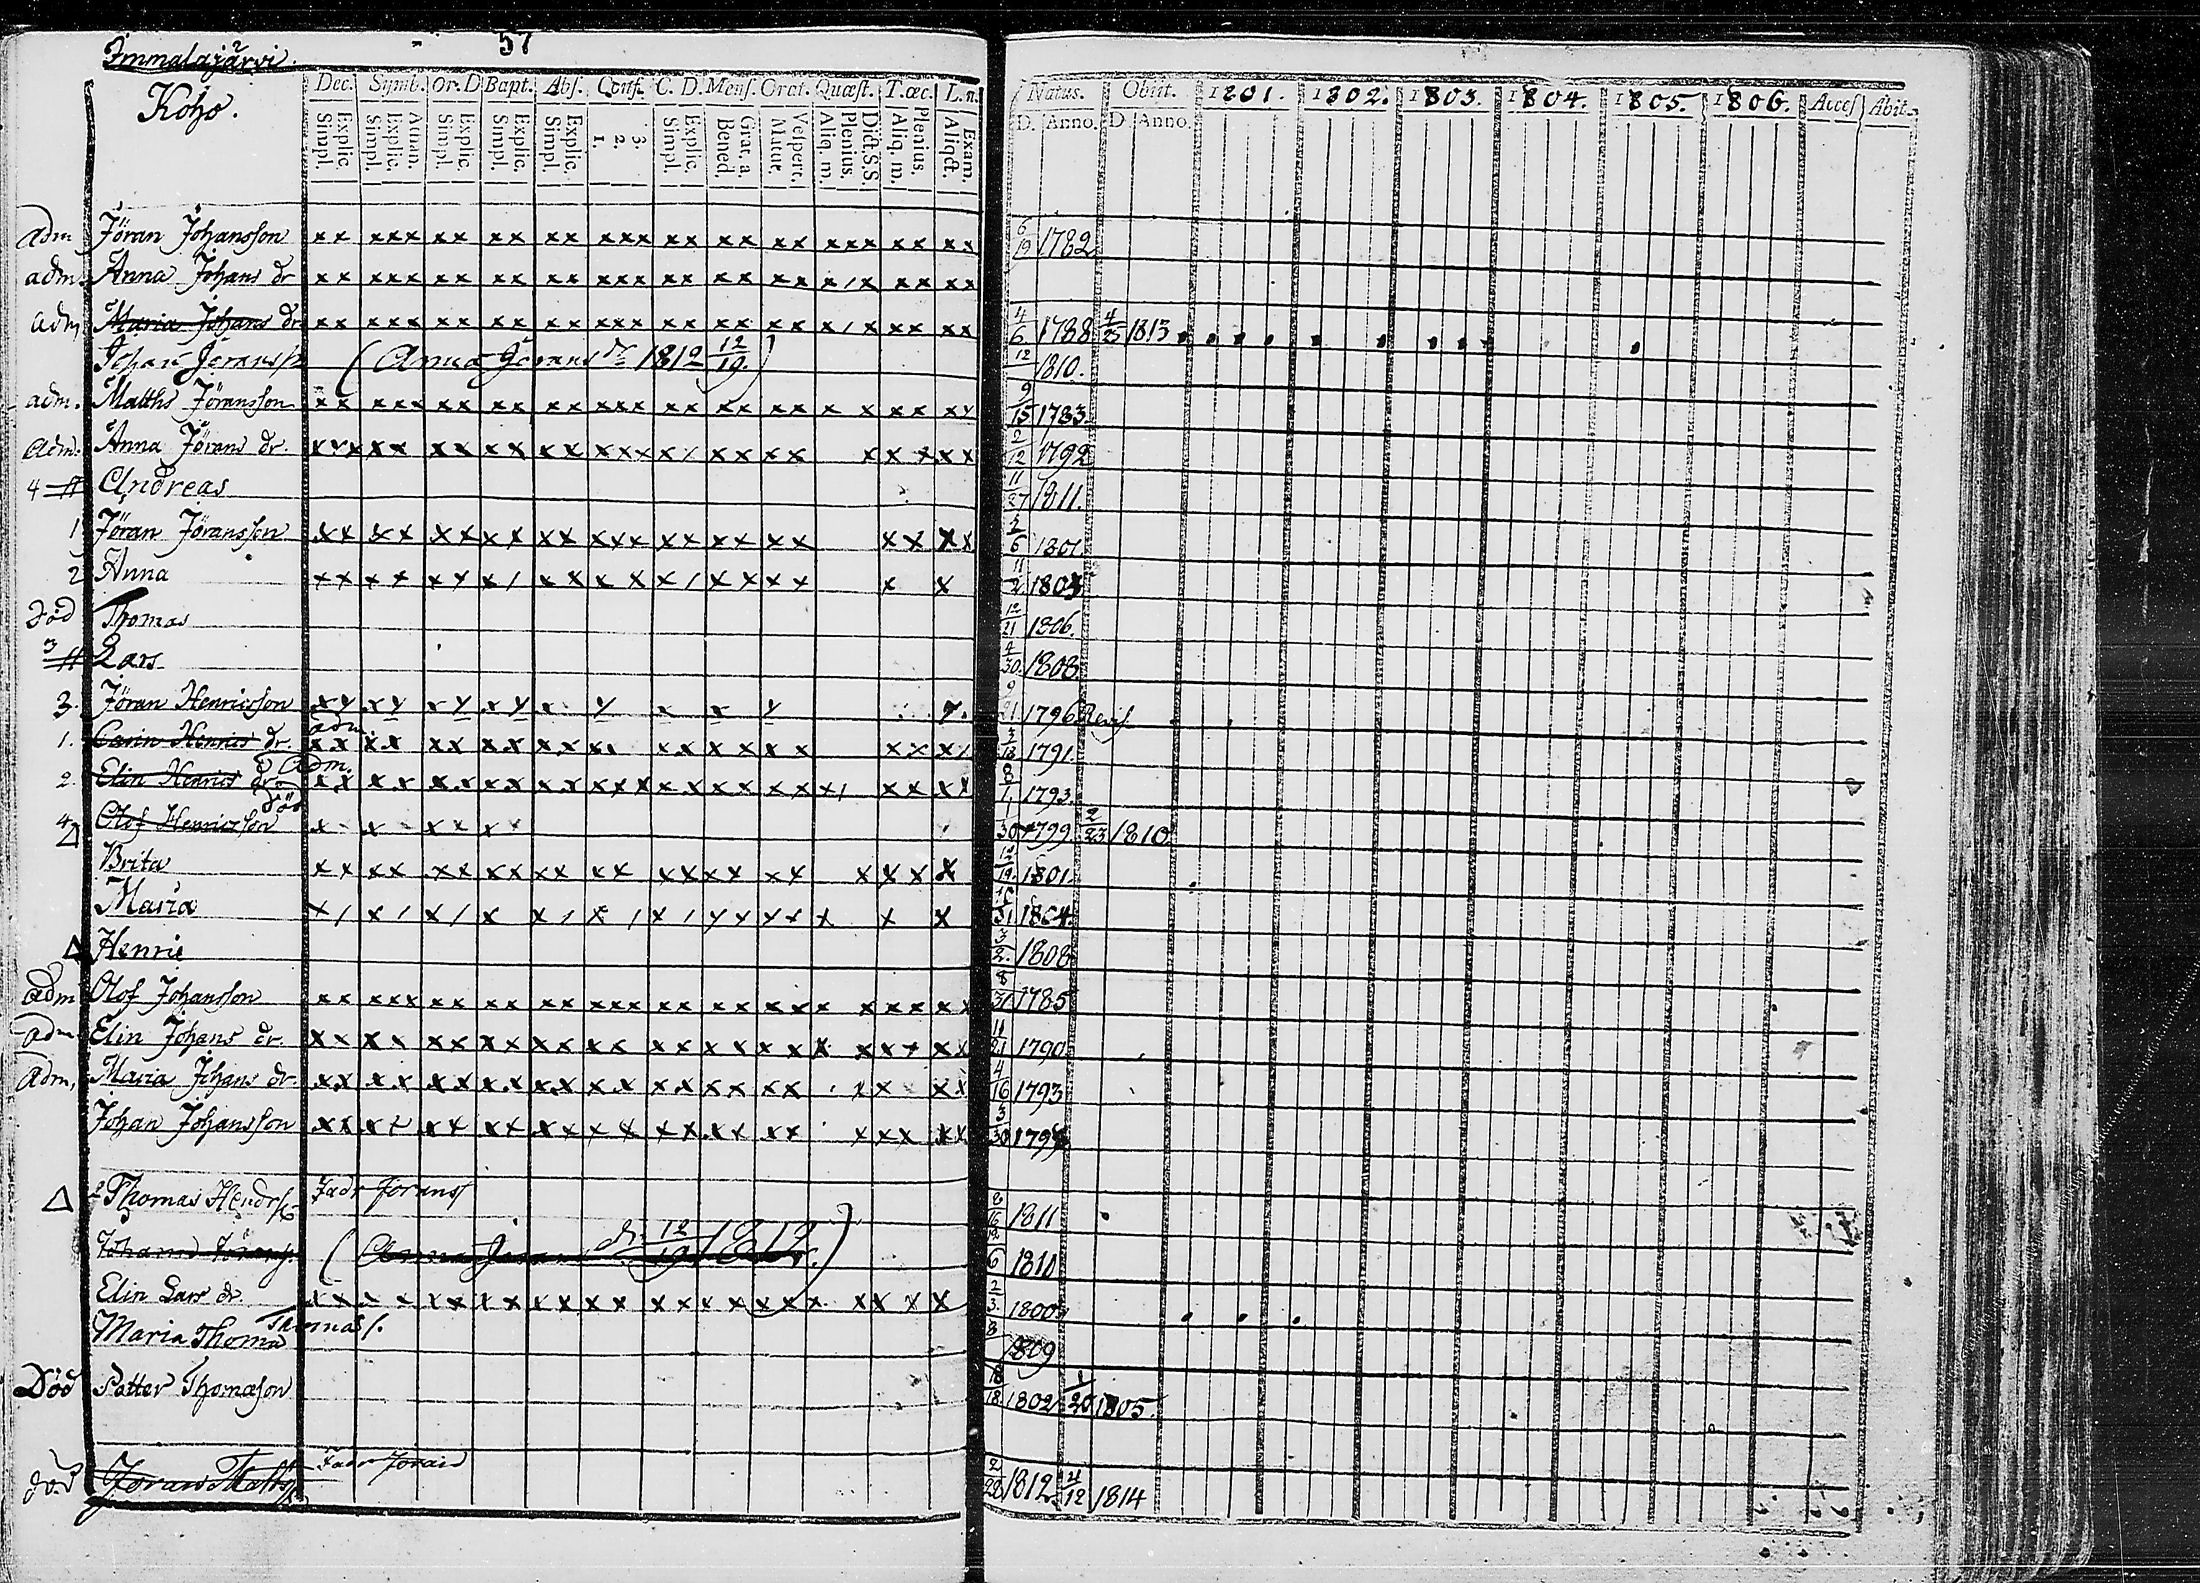 57
Immalajärvi.
Koho.
Dec. Symb. Or. D Bapt. Abs. Conf. C. D. Mens. Orat. Quæst. T. œc. L. n.
Simpl. Explic. Simpl. Explic. Athan. Simpl. Explic. Simpl. Explic. Simpl. Explic. 1. 2. 3. Simpl. Explic. Bened. Grat. a Matut. Vespert. Aliq. m. Plenius. Dict. S.S. Aliq. m. Plenius. Aliqct. Exam.
Natus. Obiit. 1801. 1802. 1803. 1804. 1805. 1806. Acces Abit.
D. Anno. D. Anno.
adm Jöran Johansson 6/19 1782
adm. Anna Johans dr
adm Maria Johans dr 4/6 1788 4/25 1813
Johan Göranss (Anna Görans dr 1812 12/19.) 12 1810.
adm. Matths Jöransson 9/15 1783.
adm. Anna Jörans dr. 2/12 1792
4 Andreas 11/27 1811.
1 Jöran Jöransson /6 1801.
2 Anna 11/2 180
död Thomas 12/21 1806.
3 Lars 4/30. 1808.
3. Jöran Henricsson 9/21 1796
1. Carin Henrics dr. adm. 3/18 1791.
2. Elin Henrics dr Adm. 8/1 1793.
4 Olof Henricsson död /30 1799 2/23 1810
Brita 12/19 1801.
Maria /31 1804.
Henric 3/2. 1808
adm Olof Johansson 8/31 1785
adm Elin Johans dr. 11/21 1790
Adm, Maria Johans dr. 4/16 1793
Johan Johansson 3/30 179
Thomas Hendrs Fadr Jörans /16 1811
Johan Jöranss. (Anna Jörans dr 12/19 1812.) 6 1810
Elin Lars dr. 2/3. 1800
Maria Thoma Thomas f. 8 1809
Död Petter Thomason /18. 1802 1/20 1805.
död Joran Matts Fader Joran 2/28 1812 4/12 1814